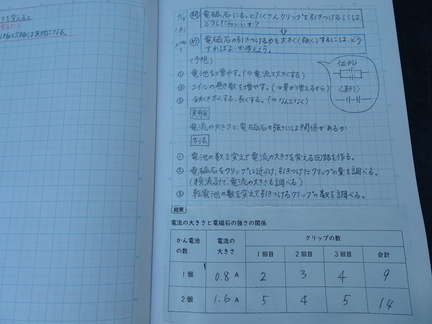 問 電磁石にもっとたくさんクリップを引きつけるには
どうしたらいいか?
問 電磁石の引きつける力を大きく(強く)するには、どう
すればよいか考えよう。
(予想)
① 電池を増やす。(⇨電流を大きくする)
② コイルの巻き数を増やす。
③ 鉄くぎを太くする、長くする。(⇨なんとなく)
実験
電流の大きさと電磁石の強さには関係があるか
方法
① 電池の数を変えて電流の大きさを変える回路を作る。
② 電磁石をクリップに近づけ、引きつけたクリップの量を調べる。
(検流計で、電流の大きさも調べる)
③ 乾電池の数を変えて引きつけるクリップの数を調べる。
結果
電流の大きさと電磁石の強さの関係
かん電池の数 電流の大きさ クリップの数
1回目 2回目 3回目 合計
1個 0.8 A 2 3 4 9
2個 1.6 A 5 4 5 14